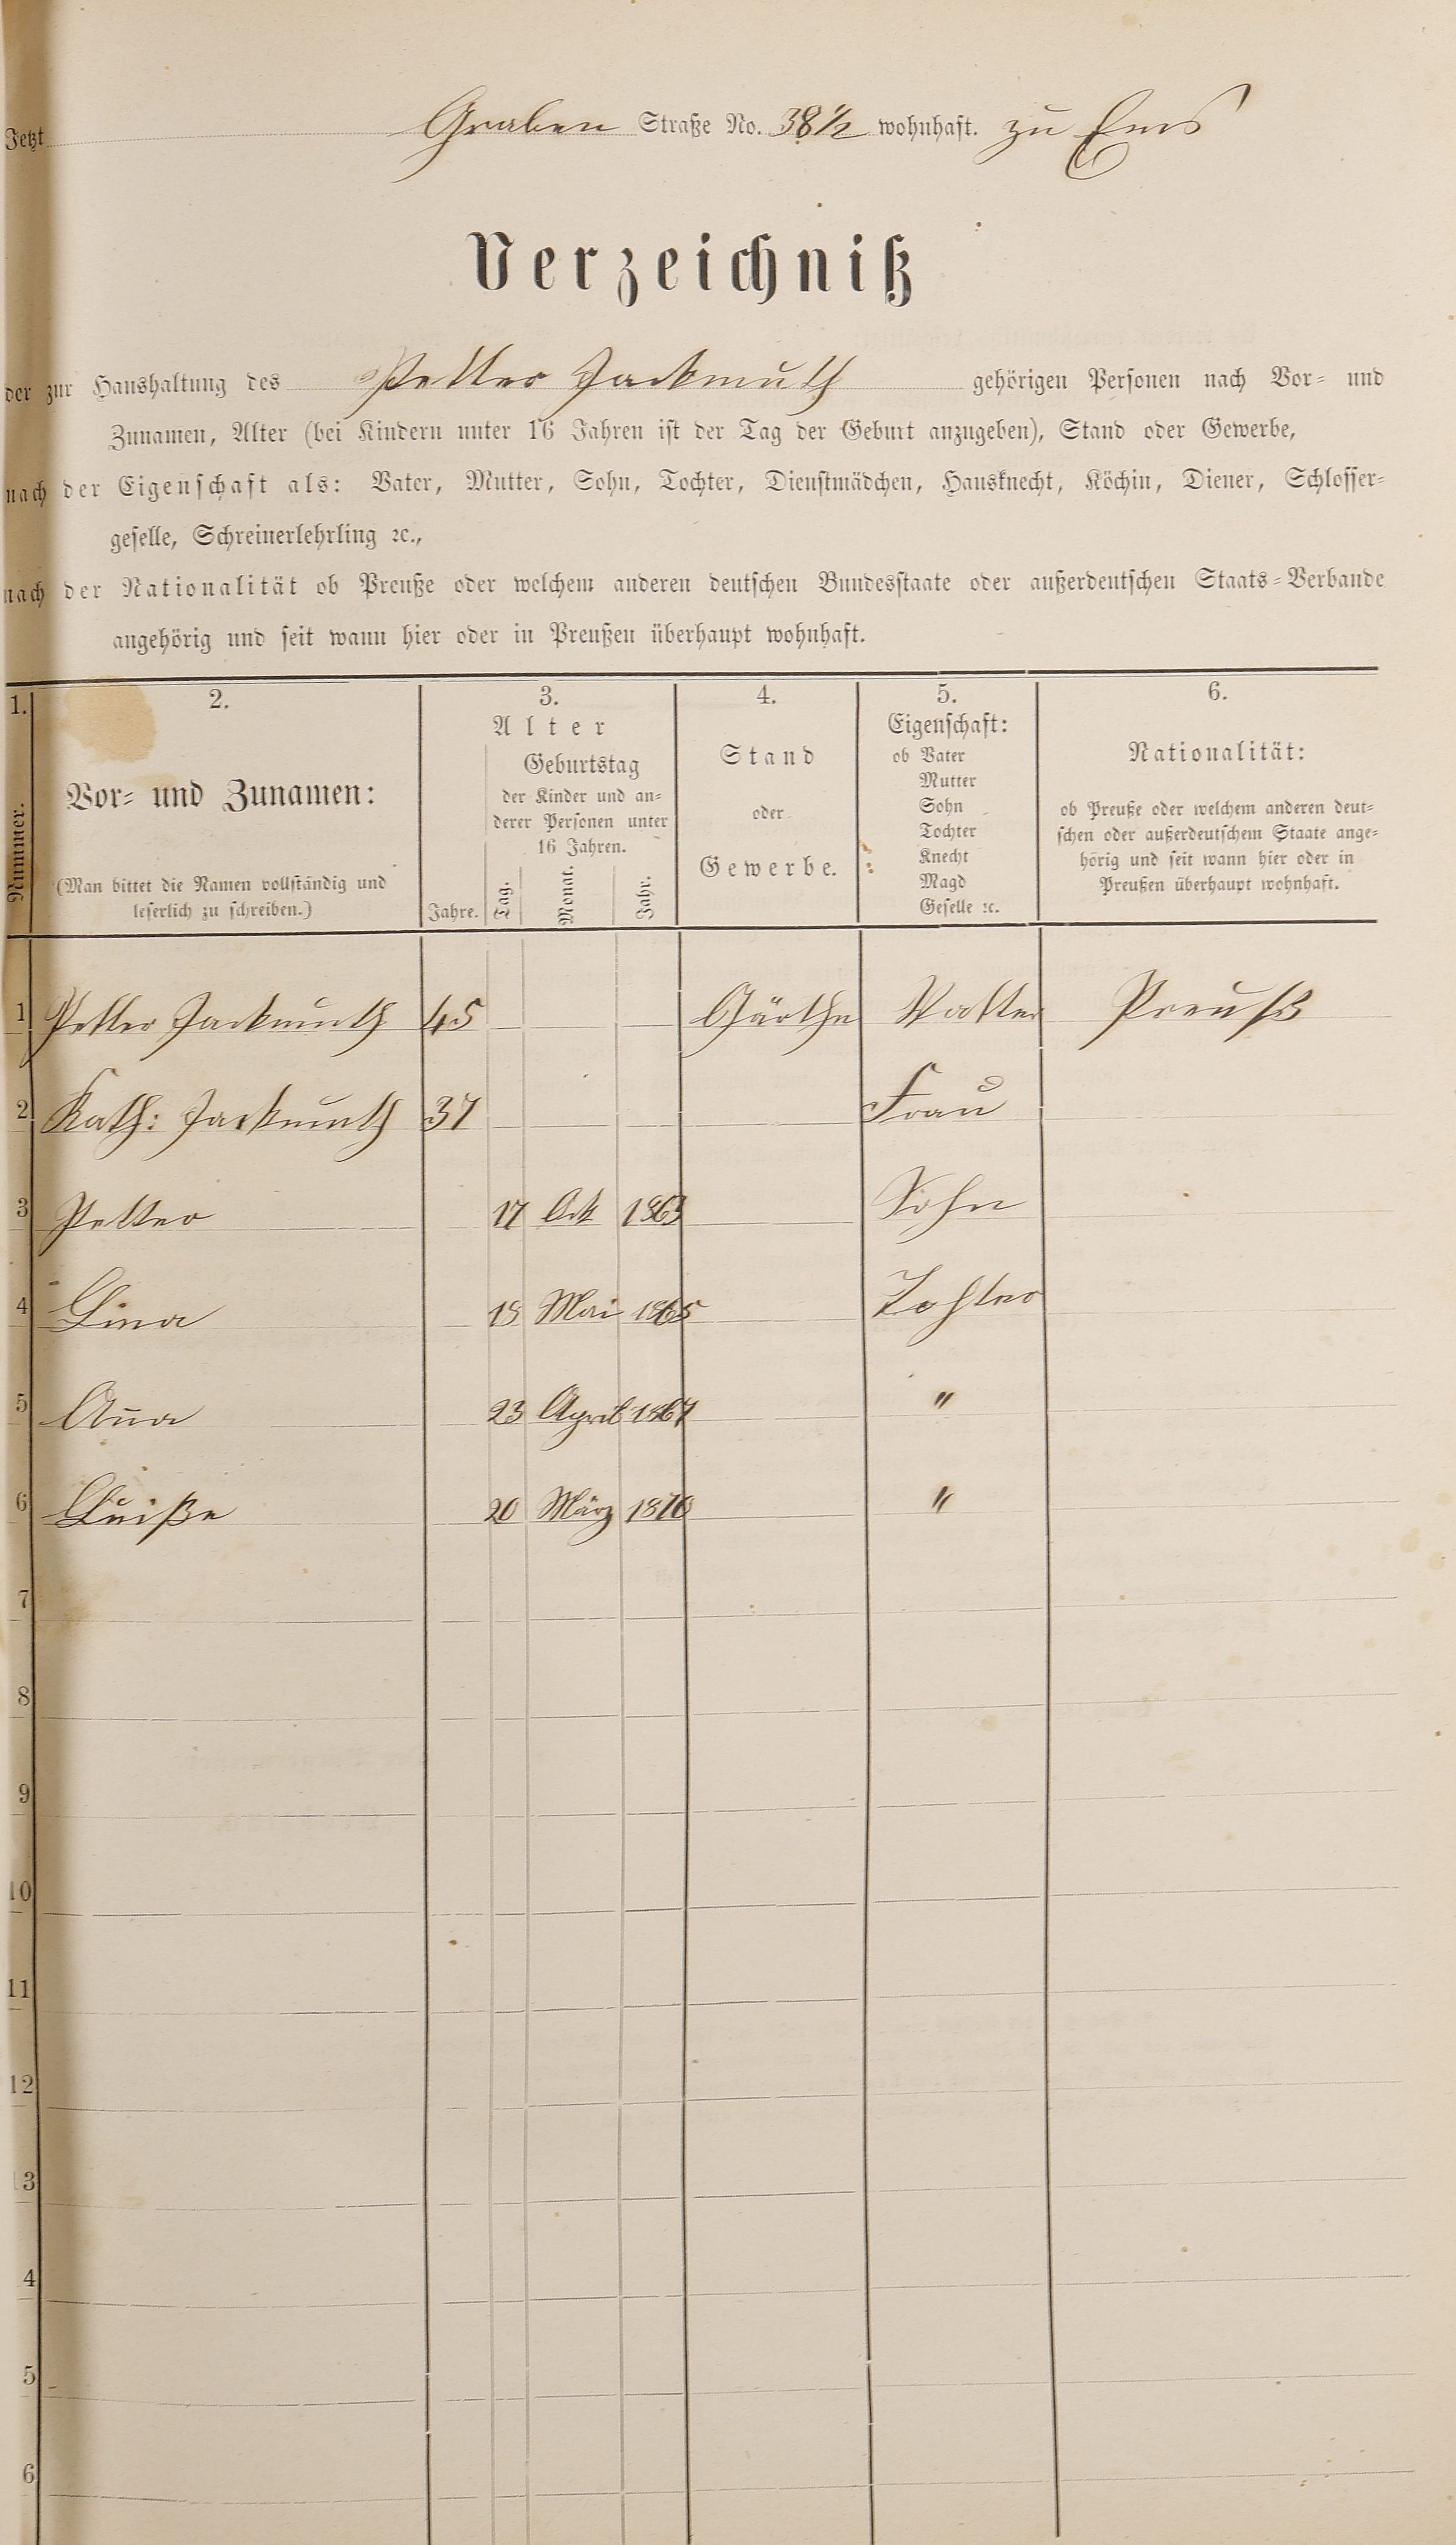 Jetzt Graben Straße No. 38 1/2 wohnhaft. zu Ems
Verzeichniß
der zur Haushaltung des Petter Jackmuth gehörigen Personen nach Vor- und
Zunamen, Alter (bei Kindern unter 16 Jahren ist der Tag der Geburt anzugeben), Stand oder Gewerbe,
nach der Eigenschaft als: Vater, Mutter, Sohn, Tochter, Dienstmädchen, Hausknecht, Köchin, Diener, Schlosser-
geselle, Schreinerlehrling ꝛc.,
nach der Nationalität ob Preuße oder welchem anderen deutschen Bundesstaate oder außerdeutschen Staats-Verbande
angehörig und seit wann hier oder in Preußen überhaupt wohnhaft.
1.
Nummer.
2.
Vor- und Zunamen:
(Man bittet die Namen vollständig und
leserlich zu schreiben.)
3.
Alter
Jahre.
Geburtstag
der Kinder und an-
derer Personen unter
16 Jahren.
Tag. Monat. Jahr.
4.
Stand
oder
Gewerbe.
5.
Eigenschaft:
ob Vater
Mutter
Sohn
Tochter
Knecht
Magd
Geselle ꝛc.
6.
Nationalität:
ob Preuße oder welchem anderen deut-
schen oder außerdeutschem Staate ange-
hörig und seit wann hier oder in
Preußen überhaupt wohnhaft.
1 Petter Jackmuth 45 Gärthe Vatter Preuß
2 Kath: Jackmuth 37 Frau
3 Petter 17 Ock 1863 Sohn
4 Lina 18 Mai 1865 Tohter
5 Aña 23 April 1867 "
6 Luiße 20 März 1870 "
7
8
9
10
11
12
13
4
5
6